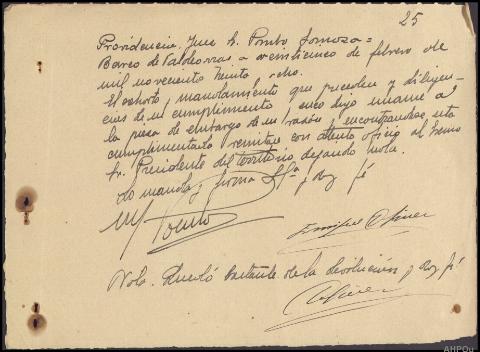 25
Providencia. Juez Sr. Pombo Somoza =
Barco de Valdeorras a veinticinco de febrero de
mil novecientos treinta y ocho.
El exhorto y mandamiento que preceden y diligen-
cias de su cumplimiento, únase a
la pieza de embargo de su razón y encontrándose esta
cumplimentada remítase con atento oficio al
Sr. Presidente del territorio dejando nota.
Lo mandó y firma S Sª y doy fé
M Pombo
Oliver
Nota. Quedó bastante de la devolución y doy fé
Oliver
AHPOu